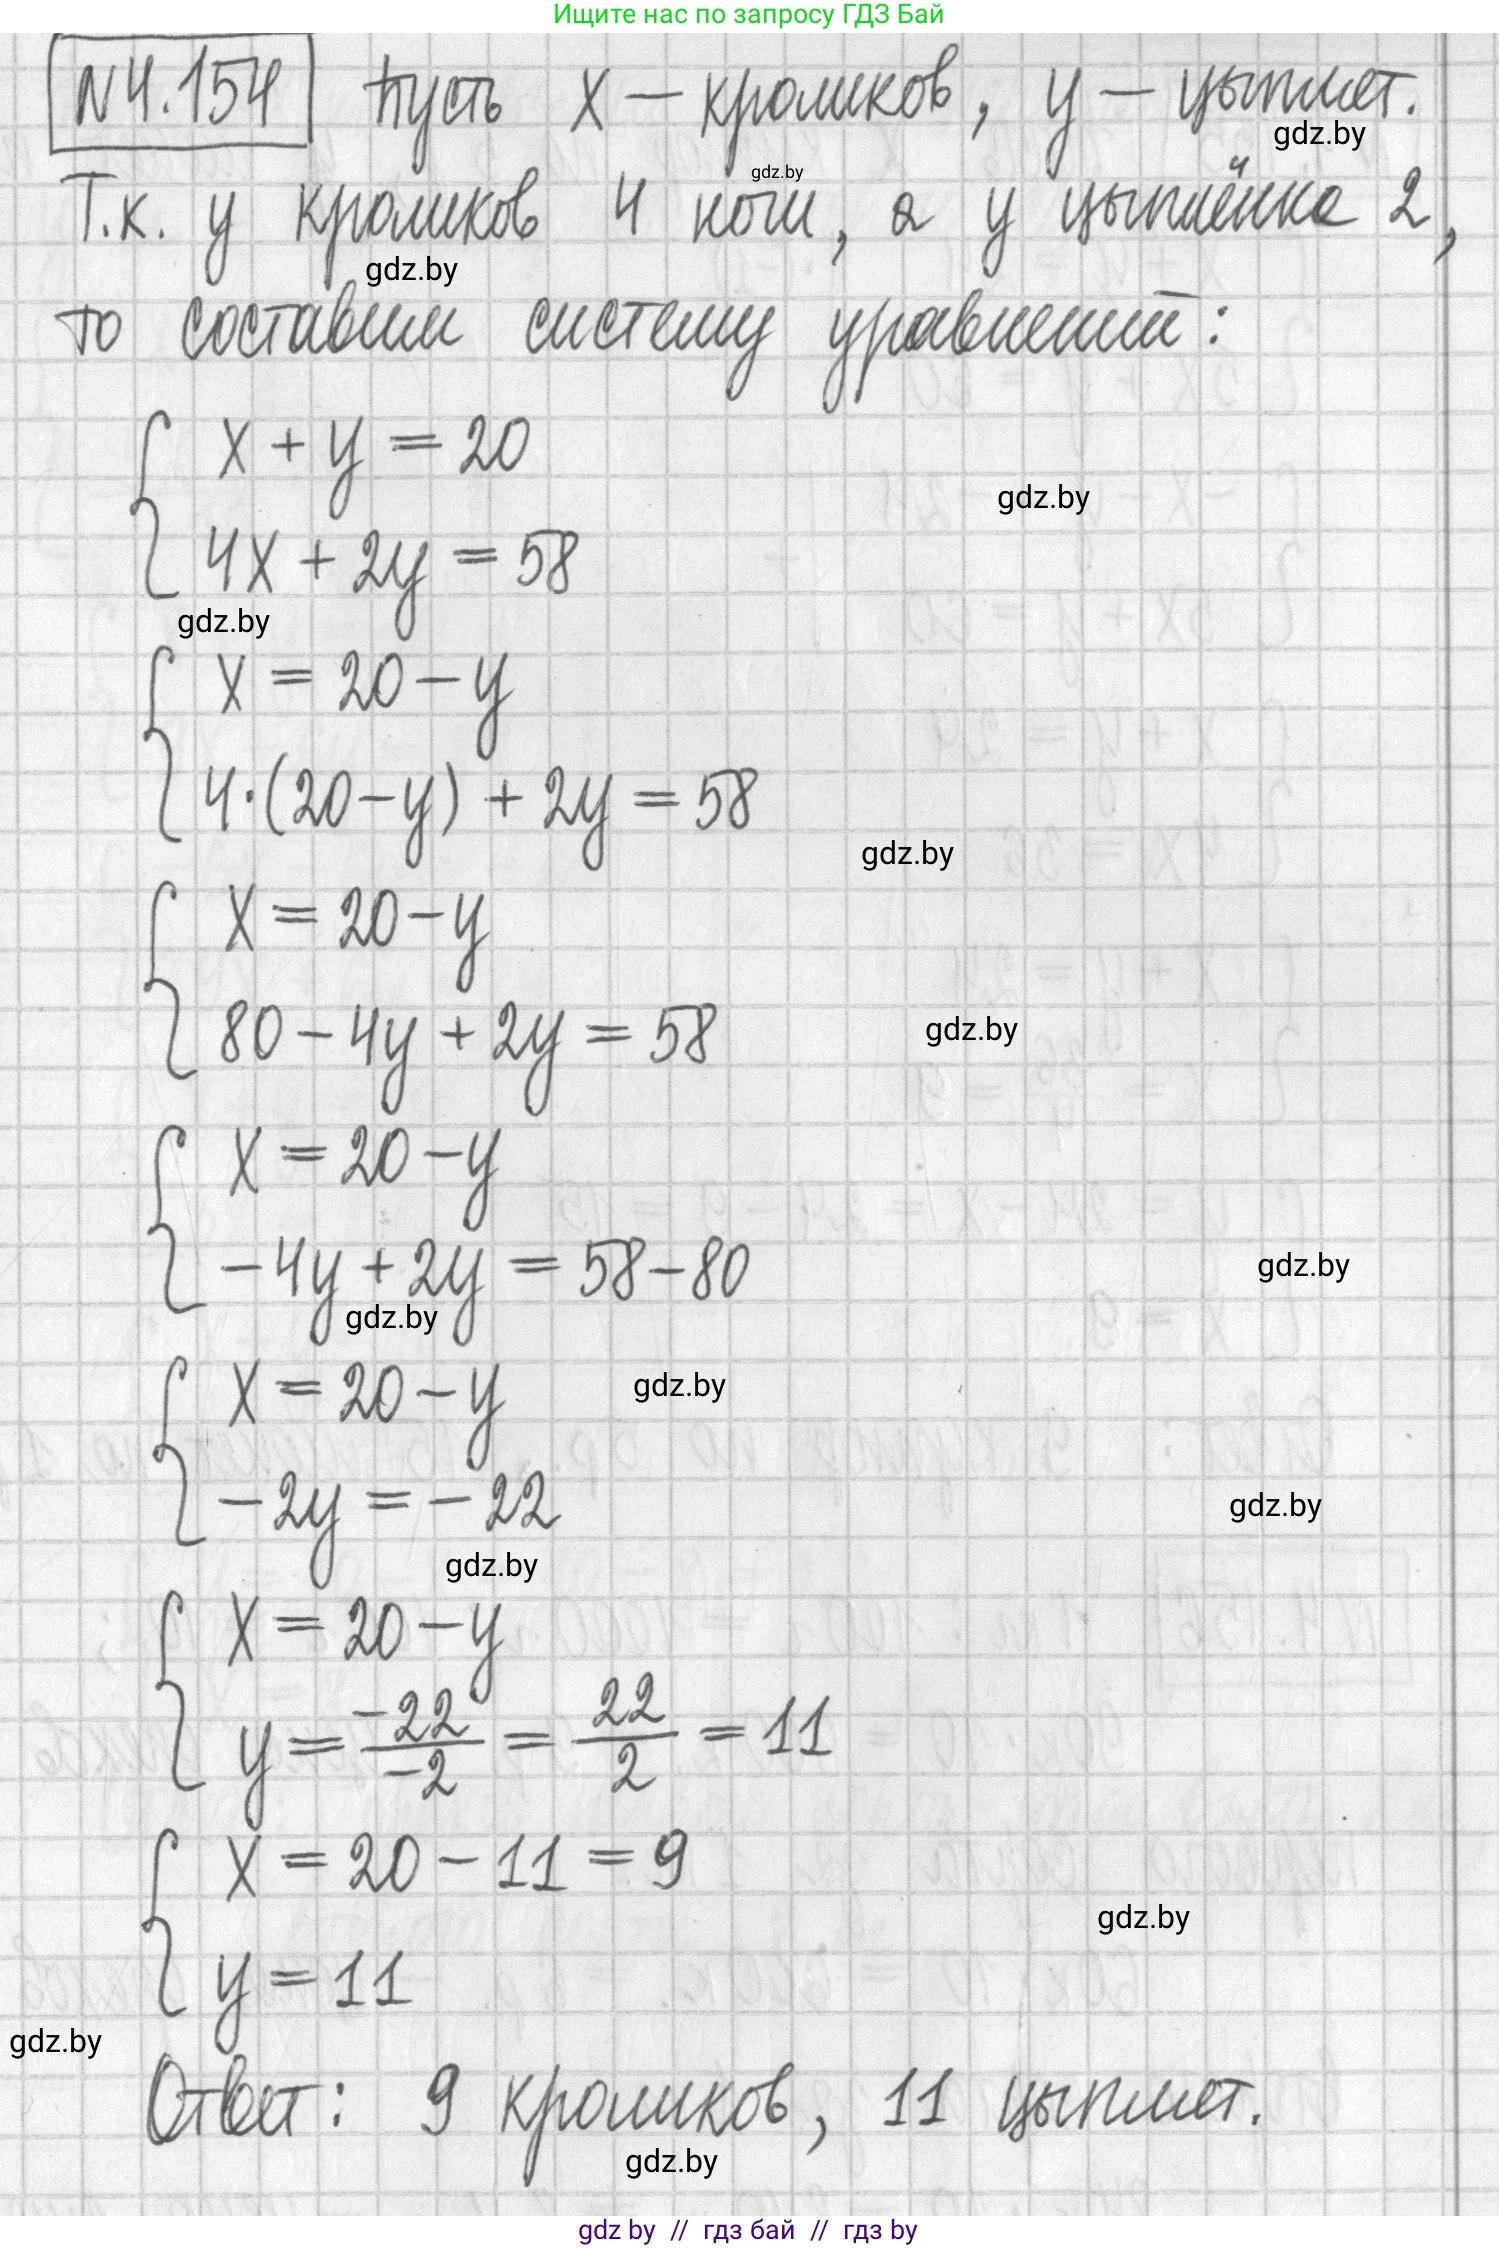 Ищите нас по запросу ГДЗ Бай
N4.154 Пусть x – кроликов, y – цыплят.
gdz.by
gdz.by
Т.к. у кроликов 4 ноги, а у цыплёнка 2,
gdz.by
то составим систему уравнений:
x + y = 20
gdz.by
4x + 2y = 58
gdz.by
x = 20 – y
4·(20 – y) + 2y = 58
gdz.by
x = 20 – y
80 – 4y + 2y = 58
gdz.by
x = 20 – y
–4y + 2y = 58 – 80
gdz.by
gdz.by
x = 20 – y
gdz.by
–2y = –22
gdz.by
gdz.by
x = 20 – y
y = –22/–2 = 22/2 = 11
x = 20 – 11 = 9
gdz.by
y = 11
gdz.by
Ответ: 9 кроликов, 11 цыплят.
gdz.by
gdz by // гдз бай // гдз by